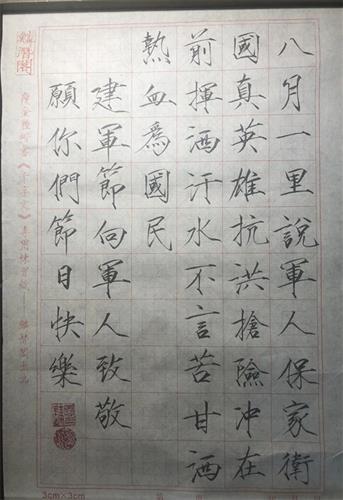 八月一里說軍人保家衛
國真英雄抗洪搶險冲在
前揮洒汗水不言苦甘洒
熱血為國民
建軍節向軍人致敬
願你們節日快樂
3cm×3cm